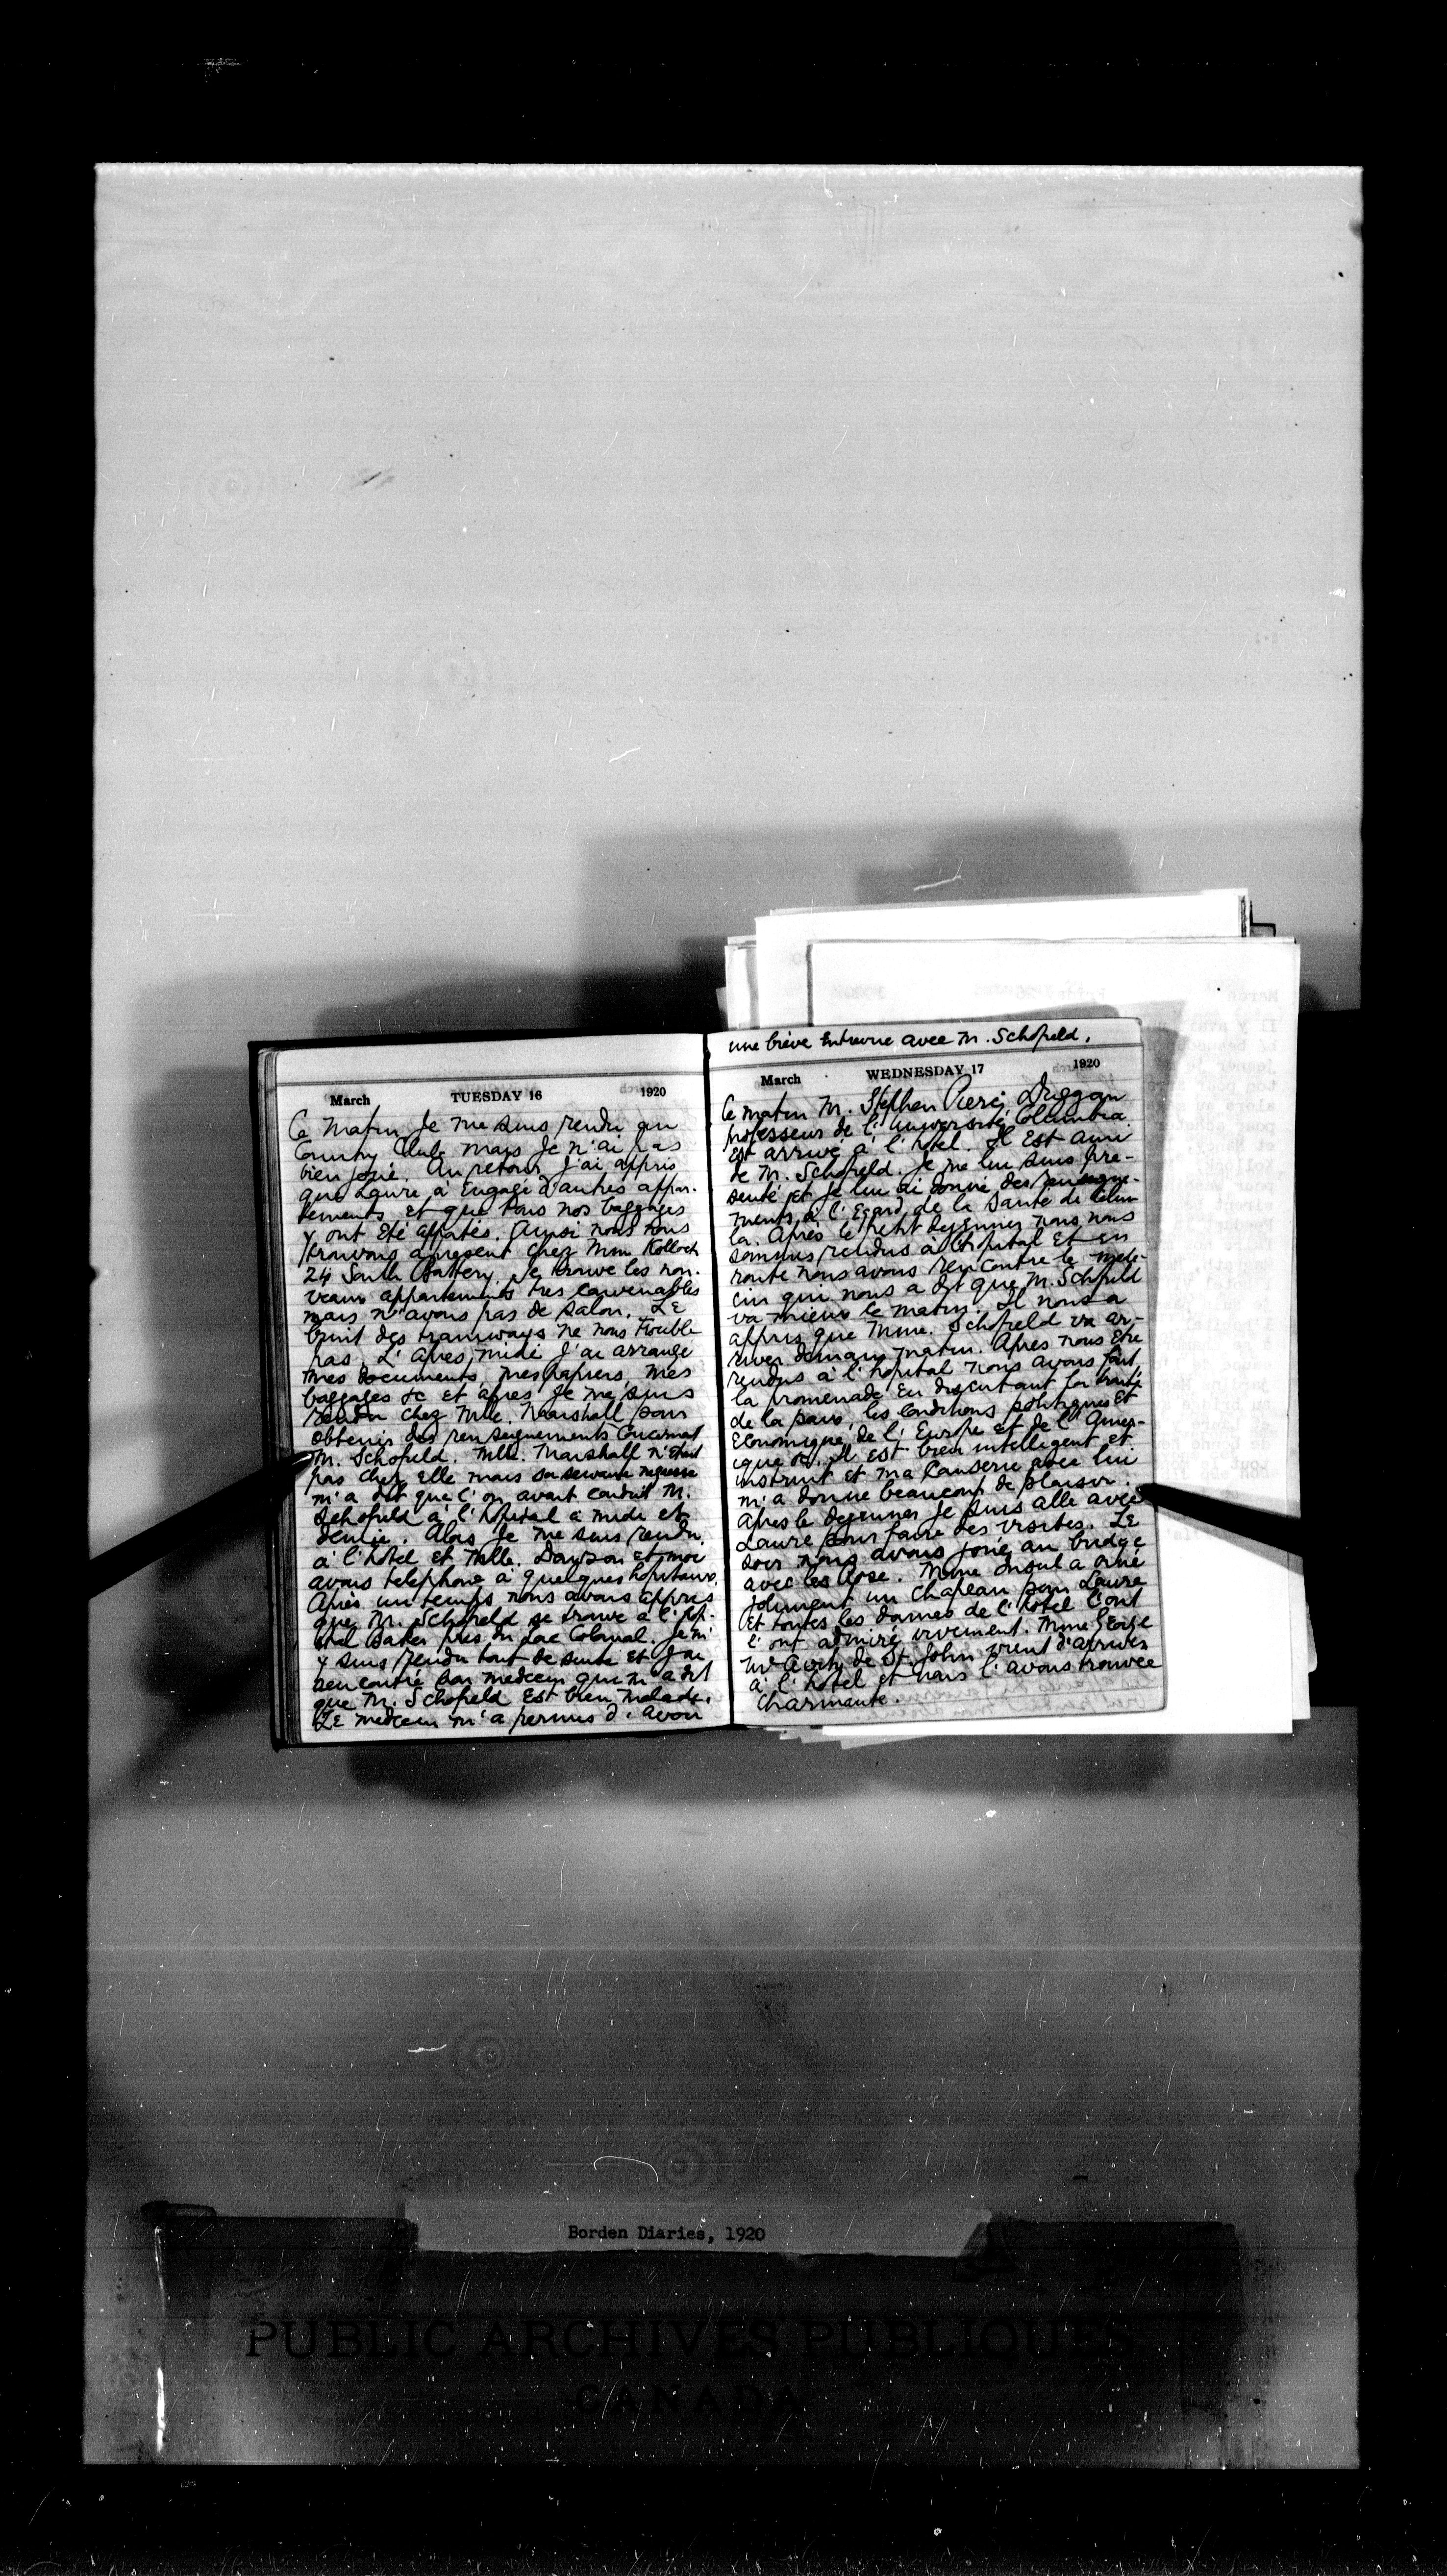 March TUESDAY 16 1920
Ce matin je me suis rendu au
Country Club mais je n'ai pas
bien joué. Au retour j'ai appris
que Laure a engagé d'autres appar-
tements et que tous nos baggages
y ont été apportés. Ainsi nous nous
trouvons apresent chez Mme Kolloch
24 South Battery. Je trouve les nou-
veaux appartements tres convenables
mais n'avons pas de salon. Le
bruit des tramways ne nous trouble
pas. L'apres midi j'ai arrangé
mes documents, mes papiers, mes
baggages &c et apres je me suis
rendu chez Mlle. Marshall pour
obtenir des renseignements concernant
M. Schofield. Mlle. Marshall n'était
pas chez elle mais sa servante negresse
m'a dit que l'on avait conduit M.
Schofield a l'hopital a midi et
demie. Alors je me suis rendu
a l'hôtel et Mlle. Dawson et moi
avons telephoné a quelques hopitaux.
Après un temps nous avons appris
que M. Schofield se trouve a l'hop-
ital Baker pres du Lac Colonial. Je m'
y suis rendu tout de suite et j'ai
rencontré son medecin que m'a dit
que M. Schofield est bien malade.
Le medecin m'a permis d'avoir
une brève entrevue avec M. Schofield.
March WEDNESDAY 17 1920
Ce matin M. Stephen Pierce Duggan
professeur de l'université Columbia
est arrivé à l'hotel. Il est ami
de M. Schofield. Je me lui suis pre-
senté et je lui ai donné des renseigne-
ments à l'egard de la santé de celui
la. Après le petit dejeuner nous nous
sommes rendus à l'hopital et en
route nous avons rencontré le mede-
cin qui nous a dit que M. Schofield
va mieux ce matin. Il nous a
appris que Mme. Schofield va ar-
river demain matin. Apres nous etre
rendus à l'hopital nous avons fait
la promenade en discutant le traité
de la paix, les conditions politiques et
economique de l'Europe et de l'Amer-
ique &c. Il est bien intelligent et
instruit et ma causerie avec lui
m'a donné beaucoup de plaisir.
Apres le dejeuner je suis allé avec
Laure pour faire des visites. Le
soir nous avons joué au bridge
avec les Rose. Mme a orné
joliment un chapeau pour Laure
et toutes les dames de l'hotel l'ont
l'ont admiré vivement. Mme George
McAvity de St. John vient d'arriver
à l'hotel et nous l'avons trouvée
charmante.
Borden Diaries, 1920
PUBLIC ARCHIVES PUBLIQUES
CANADA